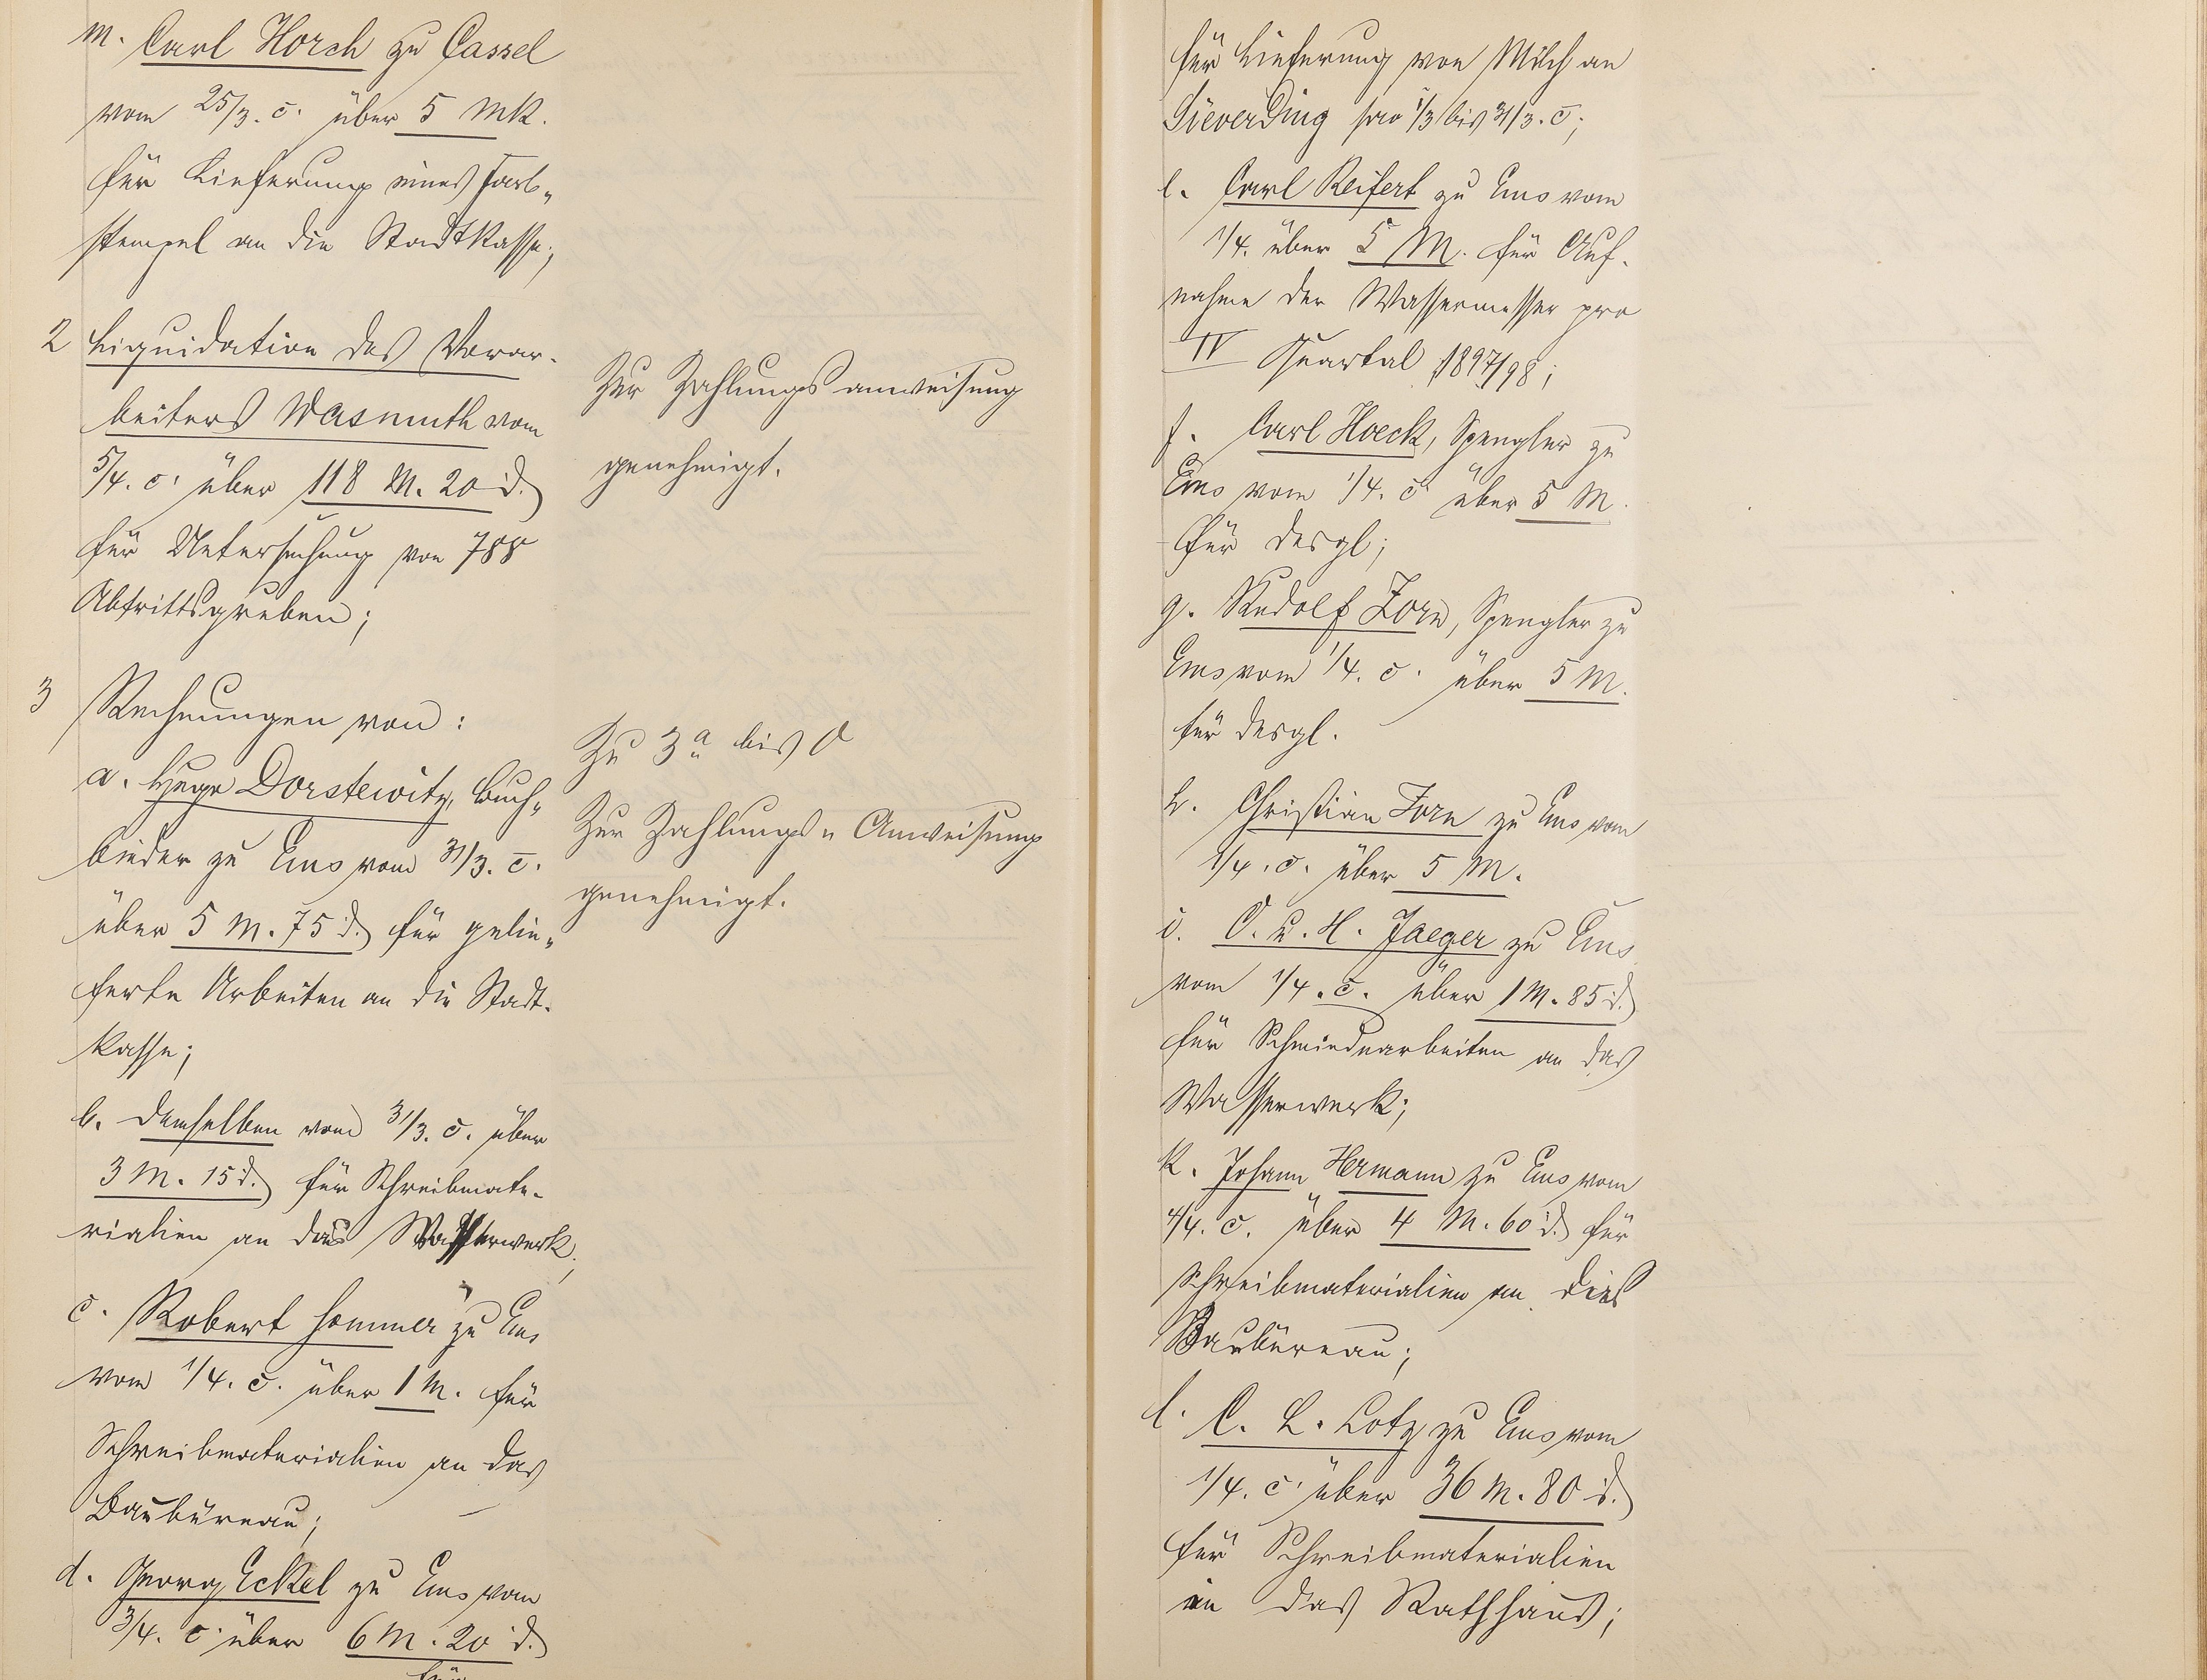 m. Carl Horch zu Cassel
vom 25/3. c. über 5 Mk.
für Lieferung eines Farb„
stempel an die Stadtkasse;
2 Liquidation des Vorar-
beiters Wasmuth vom
5/4. c. über 118 M. 20 d.
für Untersuchung von 788
Abtrittsgruben;
Zur Zahlungsanweisung
genehmigt.
3 Rechnungen von:
a. Hugo Dorstewitz, Buch„
binder zu Ems vom 31/3. c.
über 5 M. 75 d. für gelie„
ferte Arbeiten an die Stadt-
kasse;
b. demselben vom 31/3. c. über
3 M. 15 d. für Schreibmate-
rialien an das Wasserwerk;
c. Robert Sommer zu Ems
vom 1/4. c. über 1 M. für
Schreibmaterialien an das
Baubüreau;
d. Georg Eckel zu Ems vom
3/4. c. über 6 M. 20 d.
für
Zu 3 a bis o
Zur Zahlungs„Anweisung
genehmigt.
für Lieferung von Milch an
Sieverding pro 1/3 bis 31/3. c;
e. Carl Reifert zu Ems vom
1/4. über 5 M. für Auf-
nahme der Wassermesser pro
IV Quartal 1897/98;
f. Carl Hoeck, Spengler zu
Ems vom 1/4. c. über 5 M.
für desgl;
g. Rudolf Zorn, Spengler zu
Ems vom 1/4. c. über 5 M.
für desgl.
h. Christian Zorn zu Ems vom
1/4. c. über 5 M.
i. O. u. H. Jaeger zu Ems
vom 1/4. c. über 1 M. 85 d.
für Schmiedearbeiten an das
Wasserwerk;
k. Johann Hermann zu Ems vom
4/4. c. über 4 M. 60 d. für
Schreibmaterialien an
Baubüreau;
l. C. L. Lotz zu Ems vom
1/4. c. über 36 M. 80 d.
für Schreibmaterialien
in das Rathhaus;